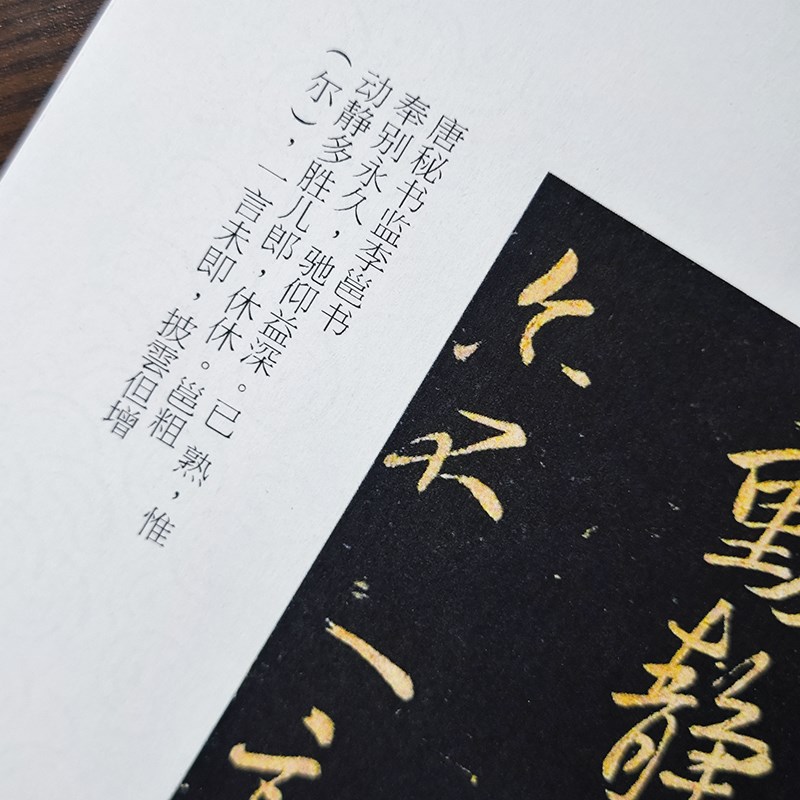 唐秘书监李邕书
奉别永久，驰仰益深。已熟，惟
动静多胜儿郎，休休。邕粗
（尔），一言未即，披雲但增
動静
一言